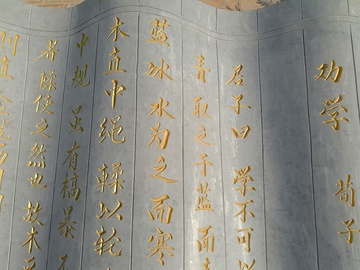 劝学 荀子
君子曰 学不可以
青 取之于蓝 而青
蓝 冰 水为之 而寒
木直中绳 輮以轮
中规 虽有槁暴 不
者 輮使之然也 故木受
直 金